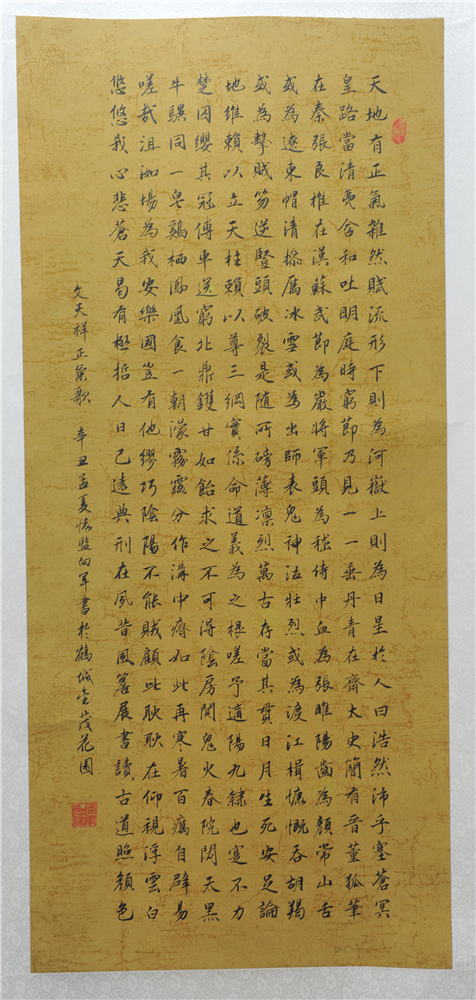 天地有正氣雜然賦流形下則為河嶽上則為日星於人曰浩然沛乎塞蒼冥
皇路當清夷含和吐明庭時窮節乃見一一垂丹青在齊太史簡有晉董狐筆
在秦張良椎在漢蘇武節為嚴將軍頭為嵇侍中血為張睢陽齒為顏常山舌
或為遼東帽清操厲冰雪或為出師表鬼神泣壯烈或為渡江楫慷慨吞胡羯
或為擊賊笏逆豎頭破裂是隨所磅薄凛烈萬古存當其貫日月生死安足論
地維賴以立天柱賴以尊三綱實係命道義為之根嗟予遘陽九隸也寔不力
楚囚纓其冠傳車送窮北鼎鑊甘如飴求之不可得陰房闃鬼火春院閟天黑
牛驥同一皂鷄栖鳳凰食一朝濛霧露分作溝中瘠如此再寒暑百癘自辟易
嗟哉沮洳場為我安樂國豈有他繆巧陰陽不能賊顧此耿耿在仰視浮雲白
悠悠我心悲蒼天曷有極哲人日已遠典刑在夙昔風簷展書讀古道照顏色
文天祥正氣歌 辛丑孟夏向軍書於鶴城金茂花園